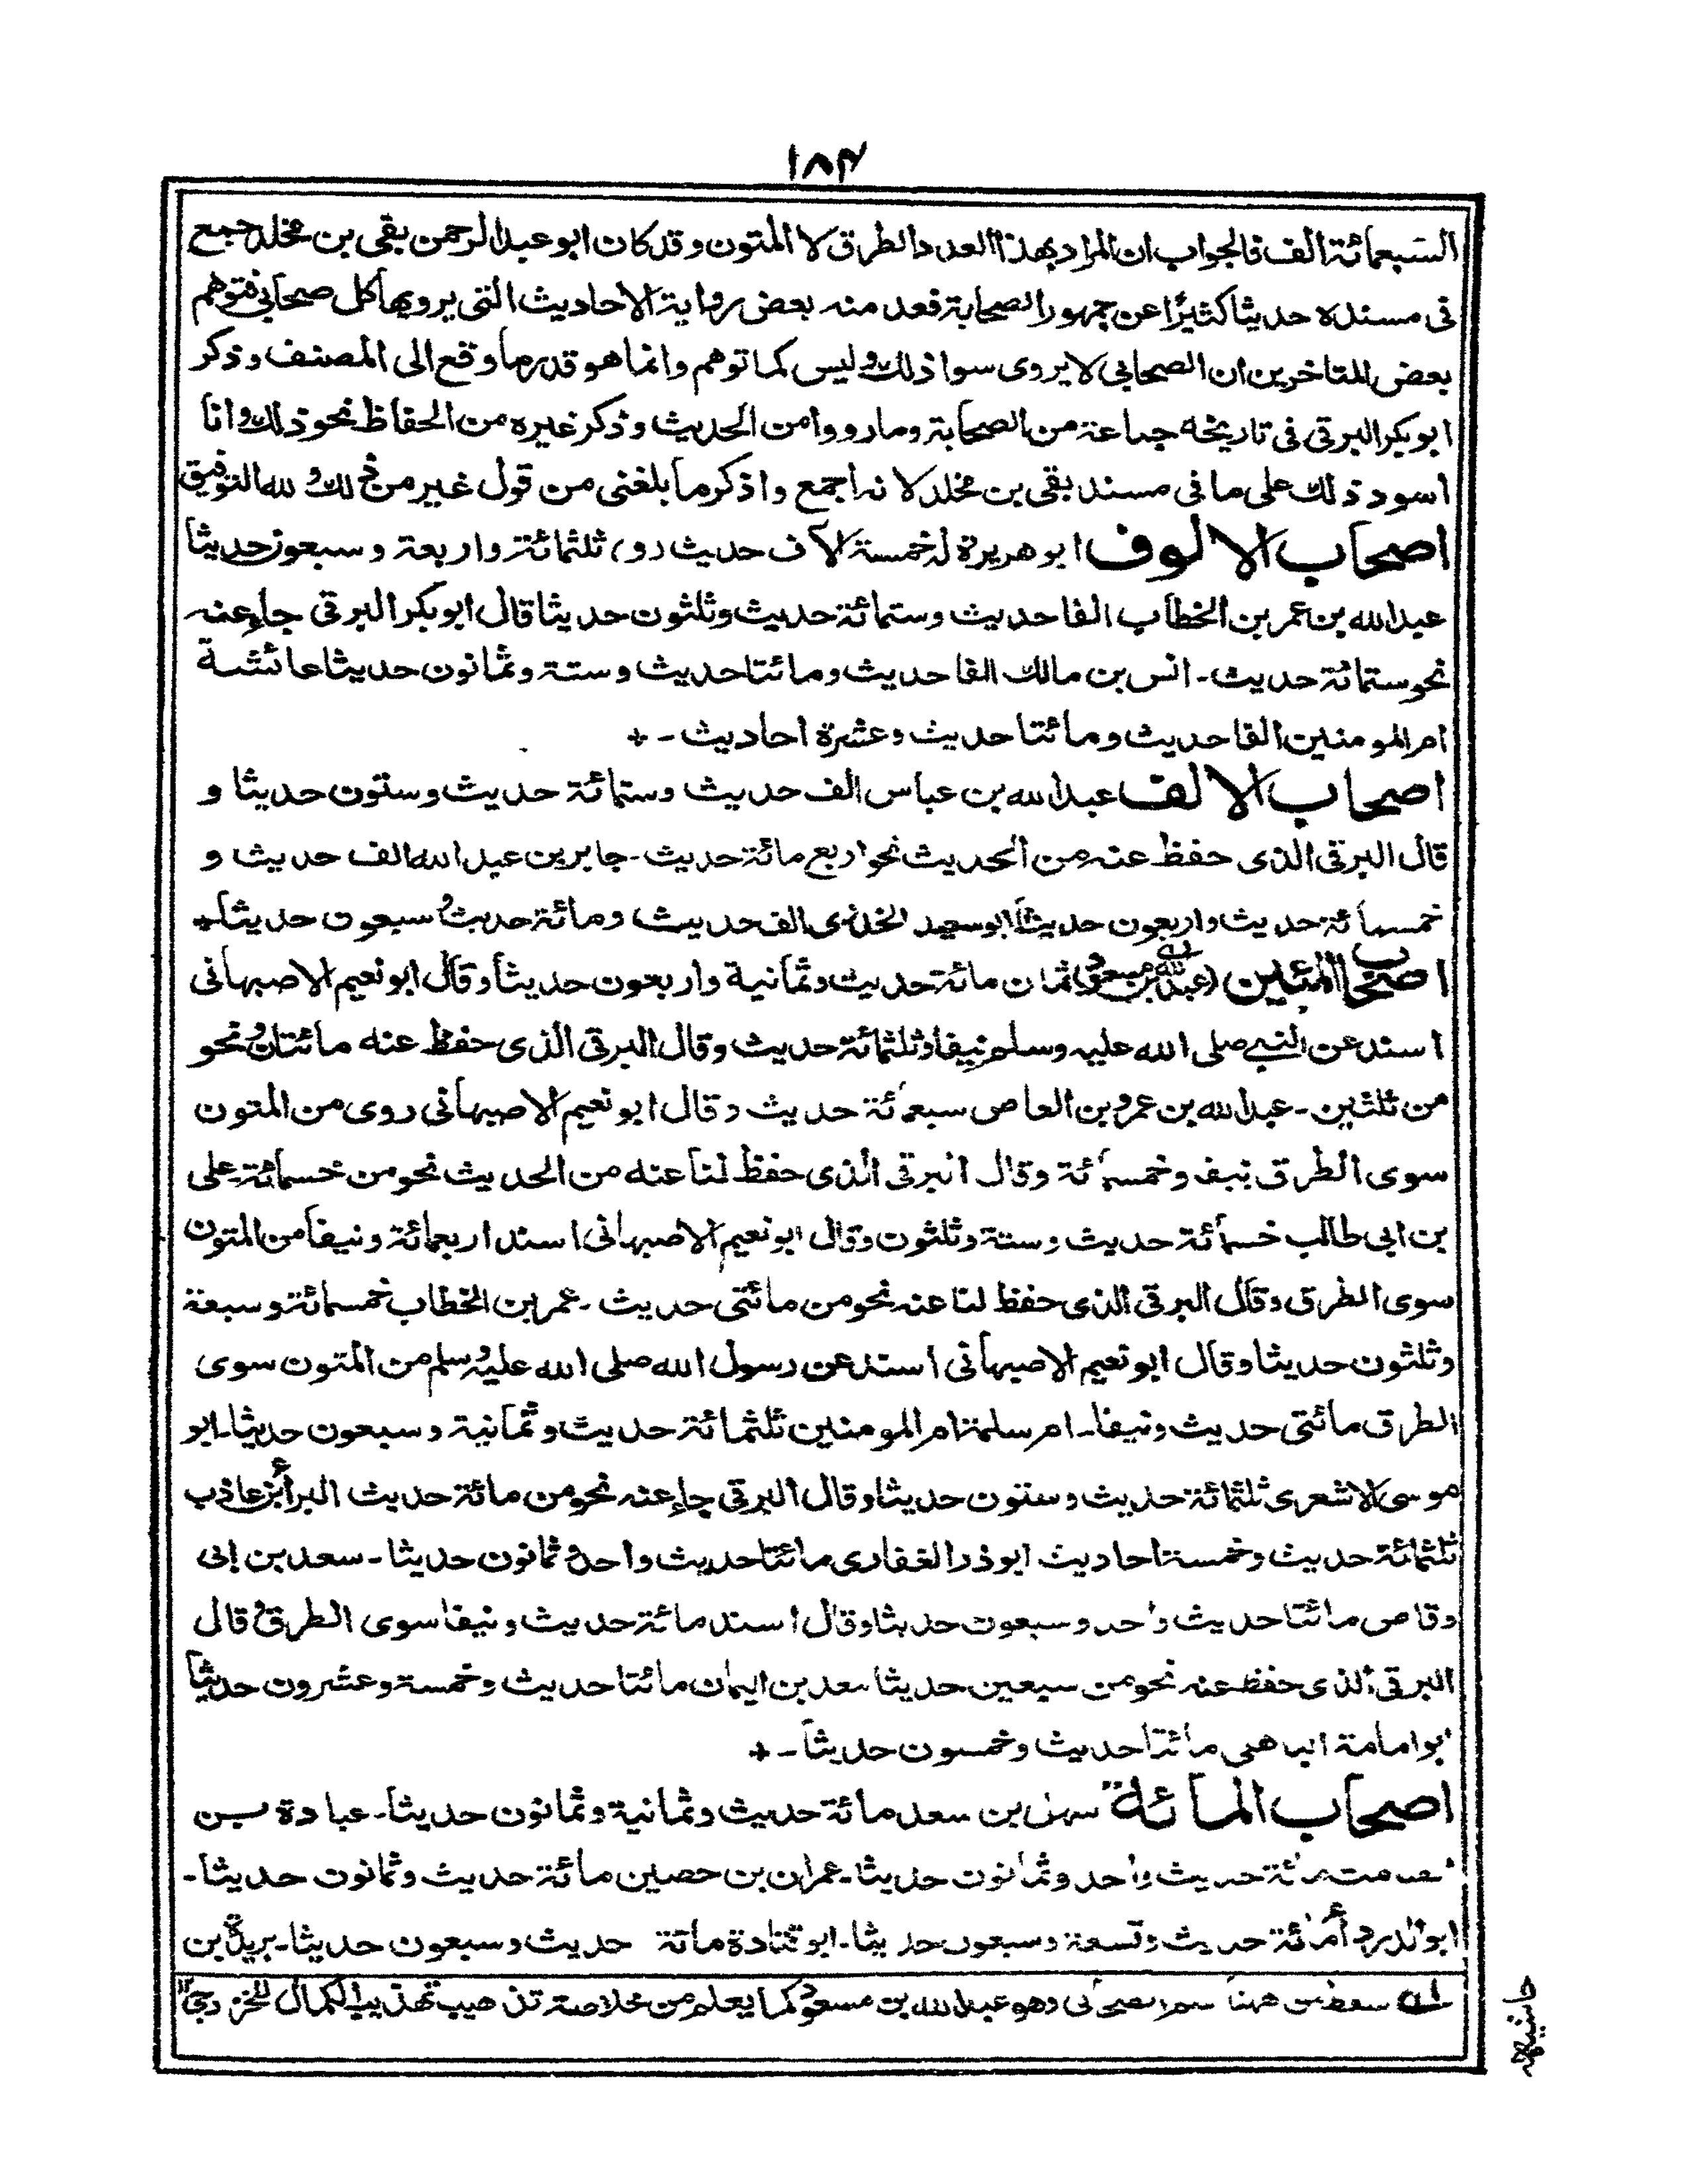 ۱۸۴
السبعمائة الف فالجواب ان المراد بهذا العدد الطرق لا المتون وقد كان ابو عبد الرحمن بقى بن مخلد جمع
فى مسنده حديثا كثيرًا عن جمهور الصحابة فعد منه بعض رواية الاحاديث التى يرويها كل صحابي فتوهم
بعض المتاخرين ان الصحابي لا يروى سوا ذلك وليس كما توهم وانما هو قدر ما وقع الى المصنف وذكر
ابو بكر البرقى فى تاريخه جماعة من الصحابة وما رووا من الحديث وذكر غيره من الحفاظ نحو ذلك وانا
اسود ذلك على ما فى مسند بقى بن مخلد لانه اجمع واذكر ما بلغنى من قول غير من ذلك ولله التوفيق
اصحاب الالوف ابو هريرة له خمسة الآف حديث و ثلثمائة واربعة وسبعون حديثا
عبد الله بن عمر بن الخطاب الفا حديث وستمائة حديث وثلثون حديثا قال ابو بكر البرقى جاء عنه
نحو ستمائة حديث۔ انس بن مالك الفا حديث ومائتا حديث وستة وثمانون حديثا عائشة
ام المومنين الفا حديث ومائتا حديث وعشرة احاديث۔ +
اصحاب الالف عبد الله بن عباس الف حديث وستمائة حديث وستون حديثا و
قال البرقى الذى حفظ عنه من الحديث نحو اربع مائة حديث۔ جابر بن عبد الله الف حديث و
خمسمائة حديث واربعون حديثا ابو سعيد الخدرى الف حديث ومائة حديث و سبعون حديثا۔+
اصحاب المئين (عبد الله بن مسعود) ثمان مائة حديث وثمانية واربعون حديثا وقال ابو نعيم الاصبهانى
اسند عن النبى صلى الله عليه وسلم نيفا وثلثمائة حديث وقال البرقى الذى حفظ عنه مائتان ونحو
من ثلثين۔ عبد الله بن عمرو بن العاص سبعمائة حديث وقال ابو نعيم الاصبهانى روى من المتون
سوى الطرق نيف وخمسمائة وقال البرقى الذى حفظ لنا عنه من الحديث نحو من خمسمائة على
بن ابى طالب خمسمائة حديث وستة وثلثون وقال ابو نعيم الاصبهانى اسند اربعمائة ونيفا من المتون
سوى الطرق وقال البرقى الذى حفظ لنا عنه نحو من مائتى حديث۔ عمر بن الخطاب خمسمائة وسبعة
وثلثون حديثا وقال ابو نعيم الاصبهانى اسند عن رسول الله صلى الله عليه وسلم من المتون سوى
الطرق مائتى حديث ونيفا۔ ام سلمة ام المومنين ثلثمائة حديث وثمانية وسبعون حديثا۔ ابو
موسى الاشعرى ثلثمائة حديث وستون حديثا وقال البرقى جاء عنه نحو من مائة حديث البراء بن عاذب
ثلثمائة حديث وخمسة احاديث ابو ذر الغفارى مائتا حديث واحد و ثمانون حديثا۔ سعد بن ابى
وقاص مائتا حديث واحد وسبعون حديثا وقال اسند مائة حديث ونيفا سوى الطرق و قال
البرقى الذى حفظ عنه نحو من سبعين حديثا سعد بن اليمان مائتا حديث وخمسة وعشرون حديثا
ابو امامة الباهلى مائتا حديث وخمسون حديثا۔ +
اصحاب المائة سهل بن سعد مائة حديث وثمانية وثمانون حديثا۔ عبادة بن
الصامت مائة حديث واحد وثمانون حديثا۔ عمران بن حصين مائة حديث وثمانون حديثا۔
ابو الدرداء مائة حديث وتسعة وسبعون حديثا۔ ابو قتادة مائة حديث وسبعون حديثا۔ بريدة بن
له سقط من ههنا اسم الصحابى وهو عبد الله بن مسعود كما يعلم من خلاصة تذهيب تهذيب الكمال للخزرجى ١٢
حاشيه